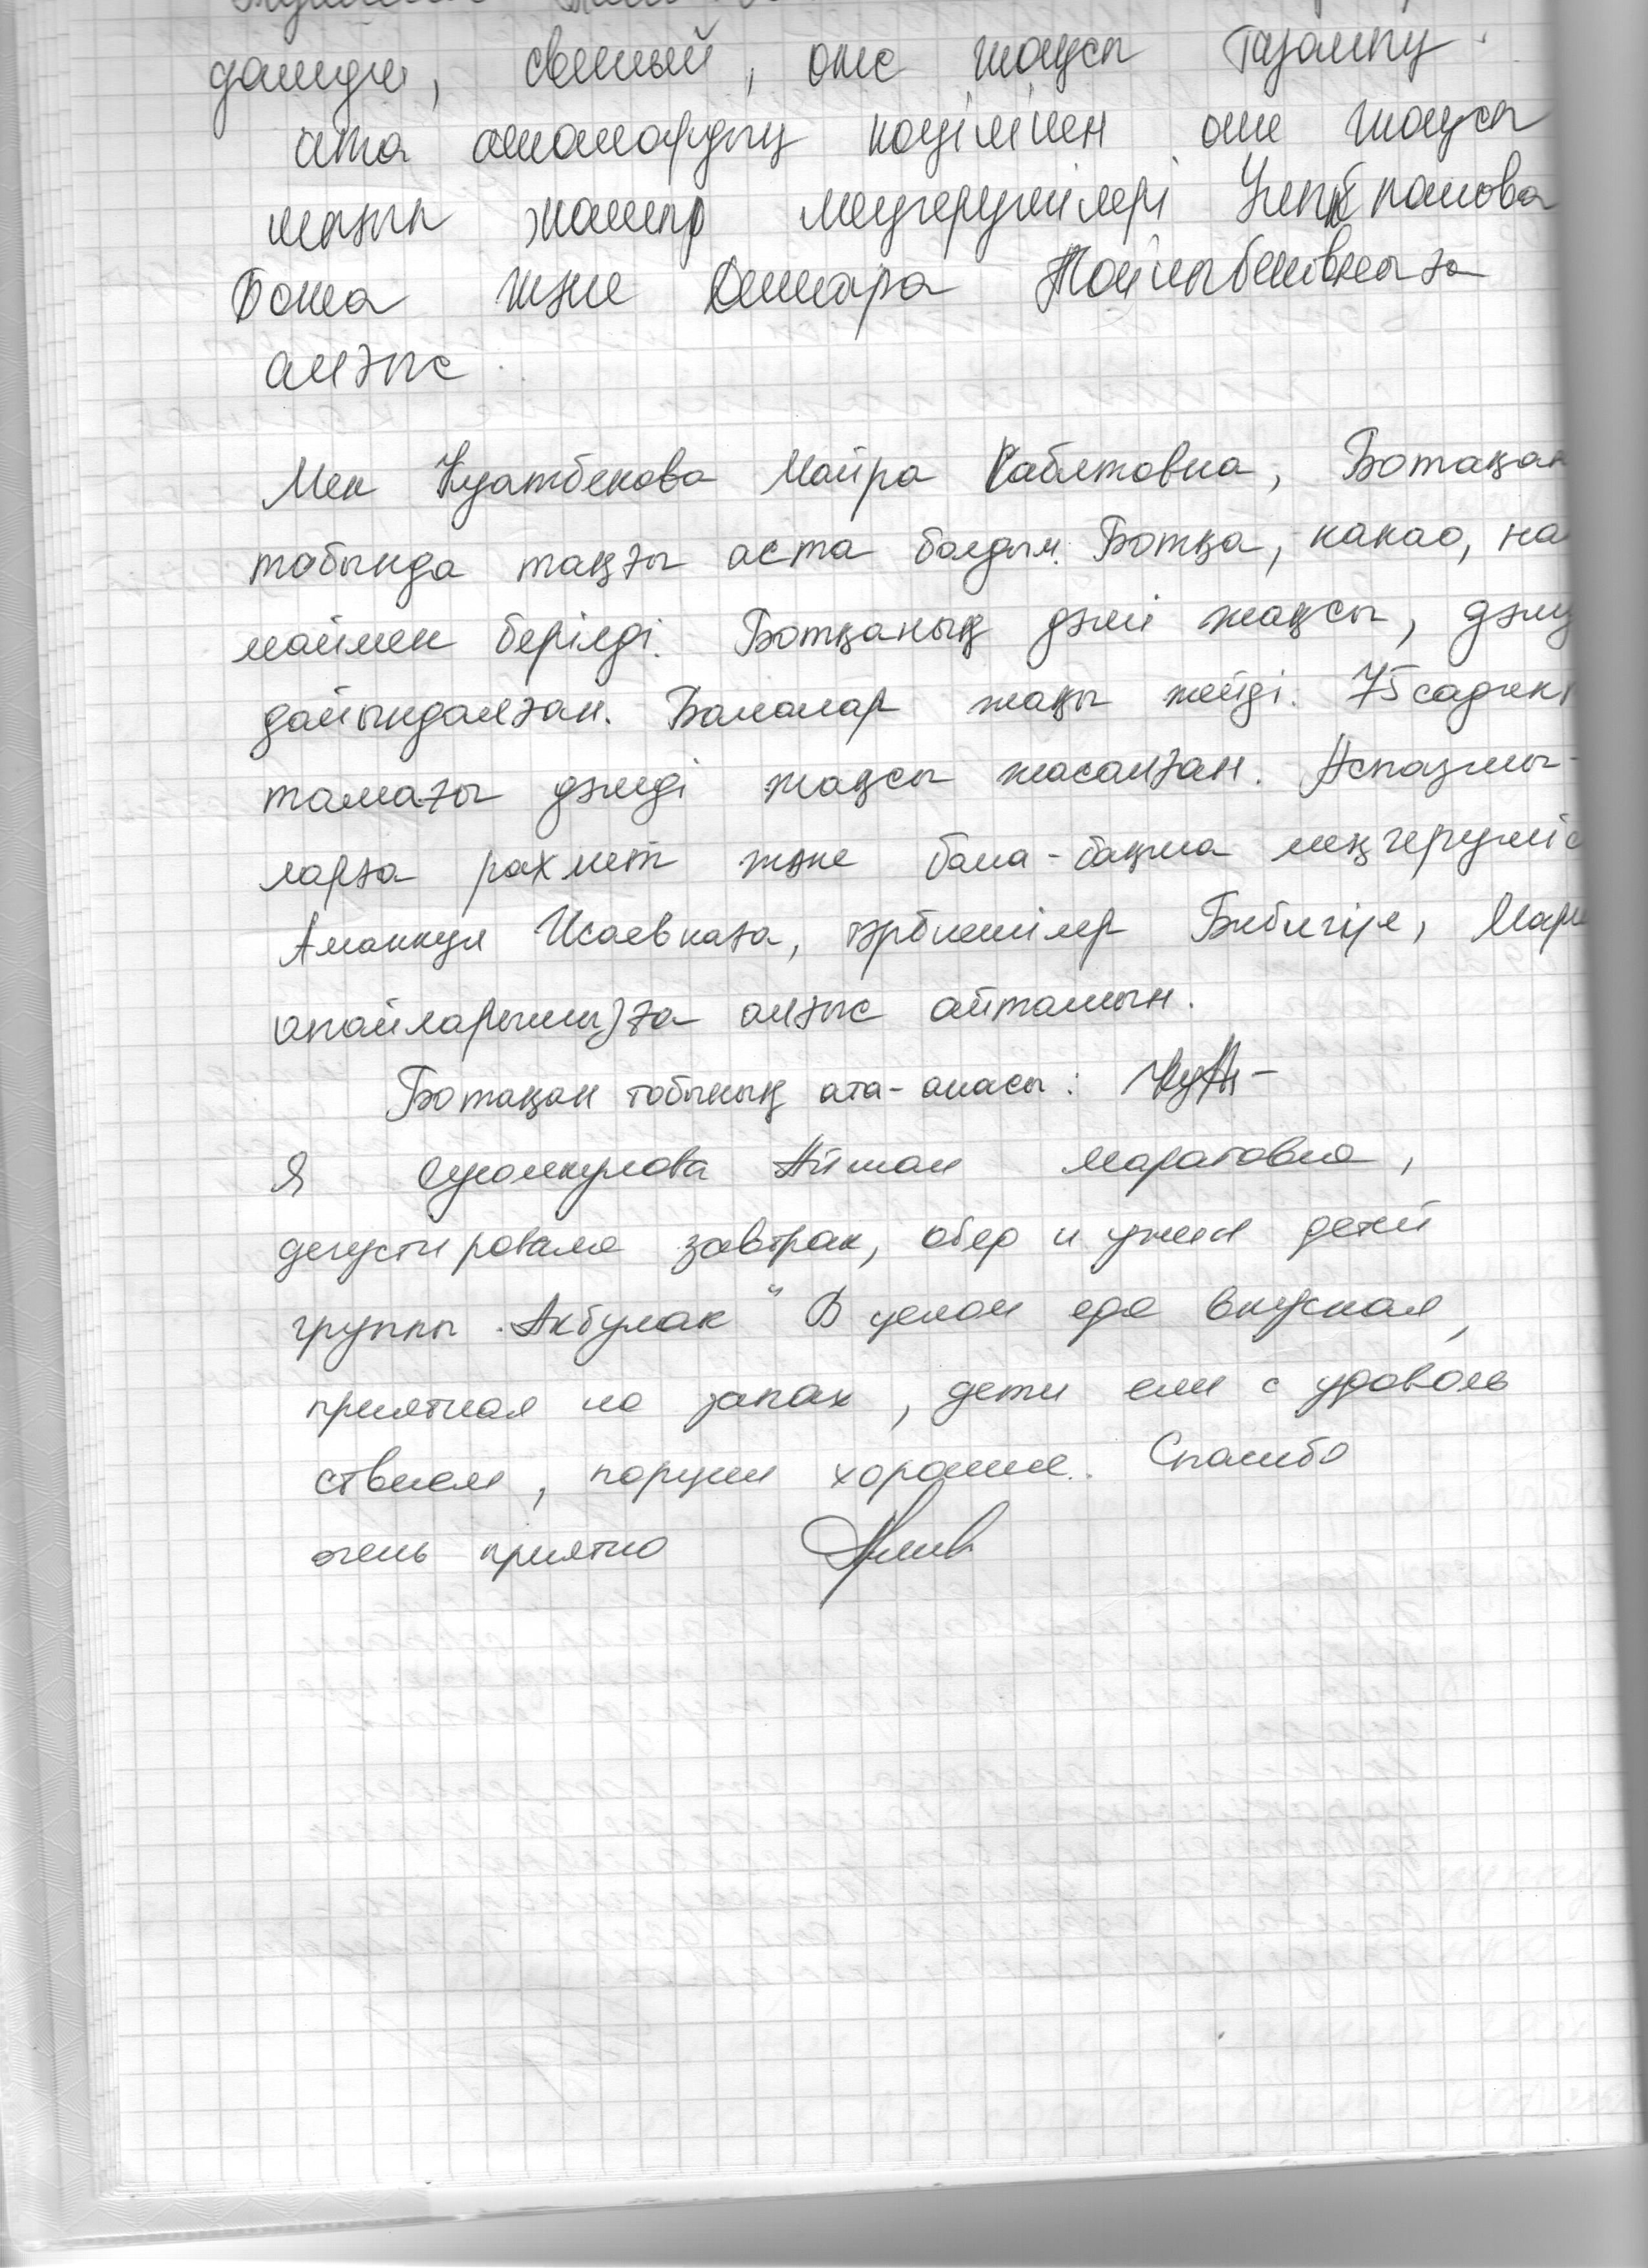 дәмді, свежий, өте жақсы тазалау.
ата аналардың көңілінен өте жақсы
шығып жатыр меңгерушілері
Бота және Динара
алғыс.
Мен Куатбекова Майра Каблетовна, Ботақан
тобында таңғы аста болдым. Ботқа, какао, на
маймен берілді. Ботқаның дәмі жақсы, дәмд
дайындалған. Балалар жақсы жейді. 75 садикт
тамағы дәмді жақсы жасалған. Аспазшы-
ларға рахмет және бала-бақша меңгерушіс
Аманкул Исаевнаға, тәрбиешілер Бибигүл, Мари
апайларымызға алғыс айтамын.
Ботақан тобының ата-анасы:
Я Айжан Маратовна,
дегустировала завтрак, обед и ужин детей
группы "Акбулак" В целом еда вкусная,
приятная на запах, дети ели с удоволь
ствием, порции хорошие. Спасибо
очень приятно